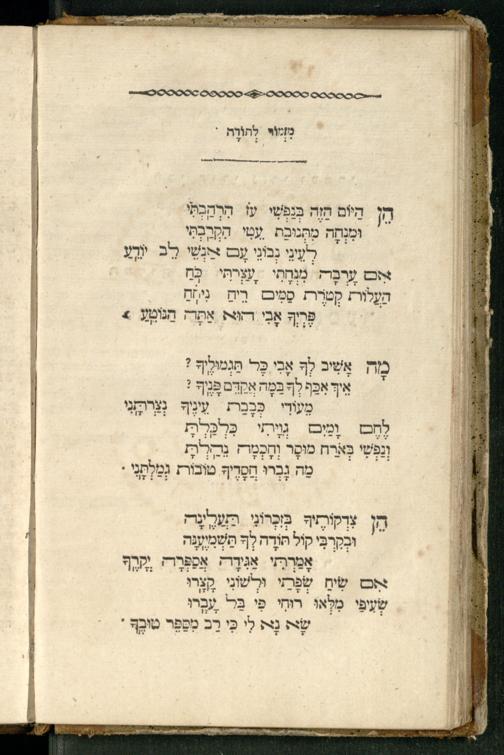 מִזְמוֹר לְתוֹדָה
הֵן הַיּוֹם הַזֶּה בְּנַפְשִׁי עֹז הִרְהַבְתִּי
וּמִנְחָה מִתְּנוּבַת עֵטִי הִקְרַבְתִּי
לְעֵינֵי נְבוֹנֵי עָם אַנְשֵׁי לֵב יוֹדֵעַ
אִם עָרְבָה מִנְחָתִי עָצַרְתִּי כֹּחַ
הַעֲלוֹת קְטֹרֶת סַמִּים רֵיחַ נִיחֹחַ
פֶּרְיְךָ אָבִי הוּא אַתָּה הַנּוֹטֵעַ
מָה אָשִׁיב לְךָ אָבִי כָּל תַּגְמוּלֶיךָ ?
אֵיךְ אִכַּף לְךָ בַּמָּה אֲקַדֵּם פָּנֶיךָ ?
מֵעוֹדִי כְּבָבַת עֵינֶיךָ נְצַרְתָּנִי
לֶחֶם וָמַיִם גְּוִיָּתִי כִּלְכַּלְתָּ
וְנַפְשִׁי בְּאֹרַח מוּסָר וְחָכְמָה נֵהַלְתָּ
מַה גָּבְרוּ חֲסָדֶיךָ טוֹבוֹת גְּמַלְתָּנִי .
הֵן צִדְקוֹתֶיךָ בְּזִכְרוֹנִי תַּעֲלֶינָה
וּבְקִרְבִּי קוֹל תּוֹדָה לְךָ תַּשְׁמִיעֶנָּה
אָמַרְתִּי אַגִּידָה אֲסַפְּרָה יְקָרֶךָ
אִם שִׂיחַ שְׂפָתַי וּלְשׁוֹנִי קָצְרוּ
שְׂעִיפַּי מִלְּאוּ רוּחִי פִּי בַּל עָבְרוּ
שָׂא נָא לִי כִּי רַב מִסַּפֵּר טוּבֶךָ .